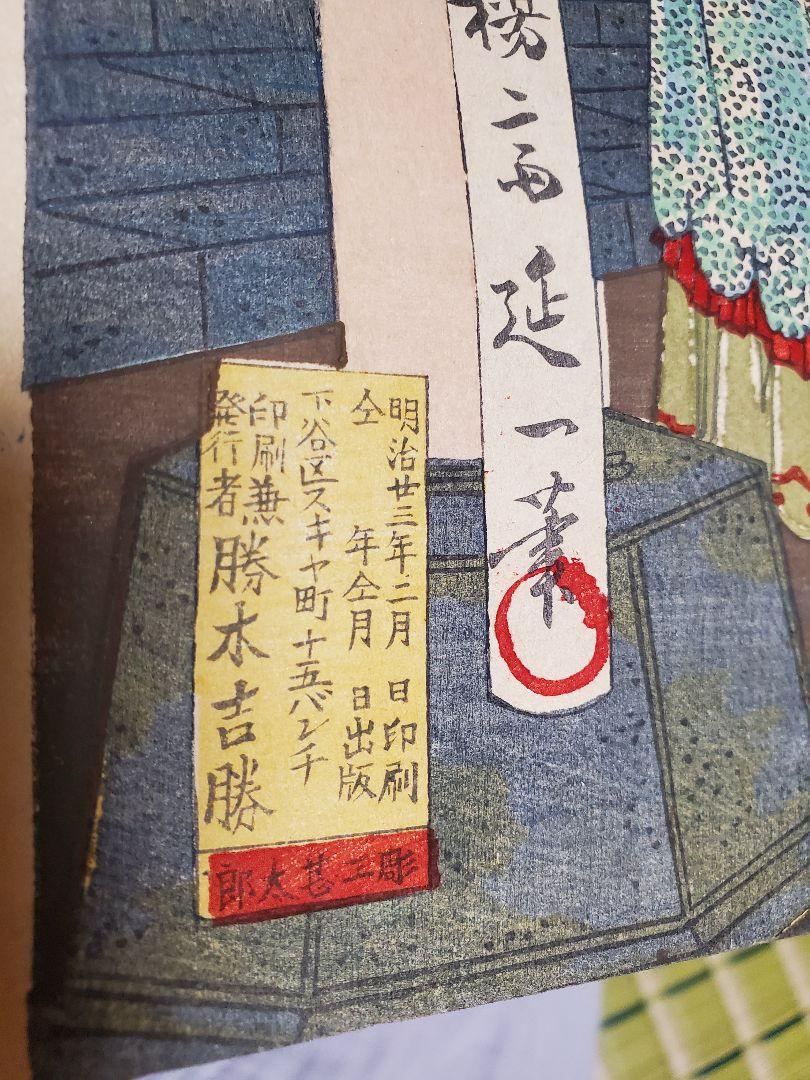 楊二斎延一筆
明治廿三年二月 日印刷
仝 年仝月 日出版
下谷区スキヤ町十五バンチ
印刷兼
発行者
勝木吉勝
彫工甚太郎